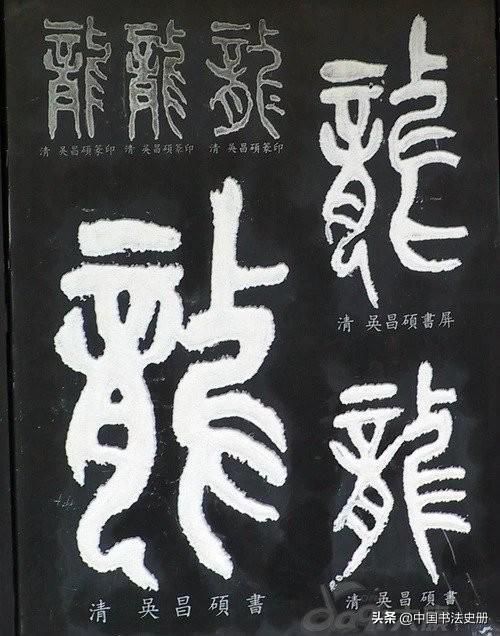 龍 龍 龍
清 吳昌碩篆印 清 吳昌碩篆印 清 吳昌碩篆印
龍
清 吳昌碩書屏
龍
清 吳昌碩書
龍
清 吳昌碩書
头条 @中国书法史册